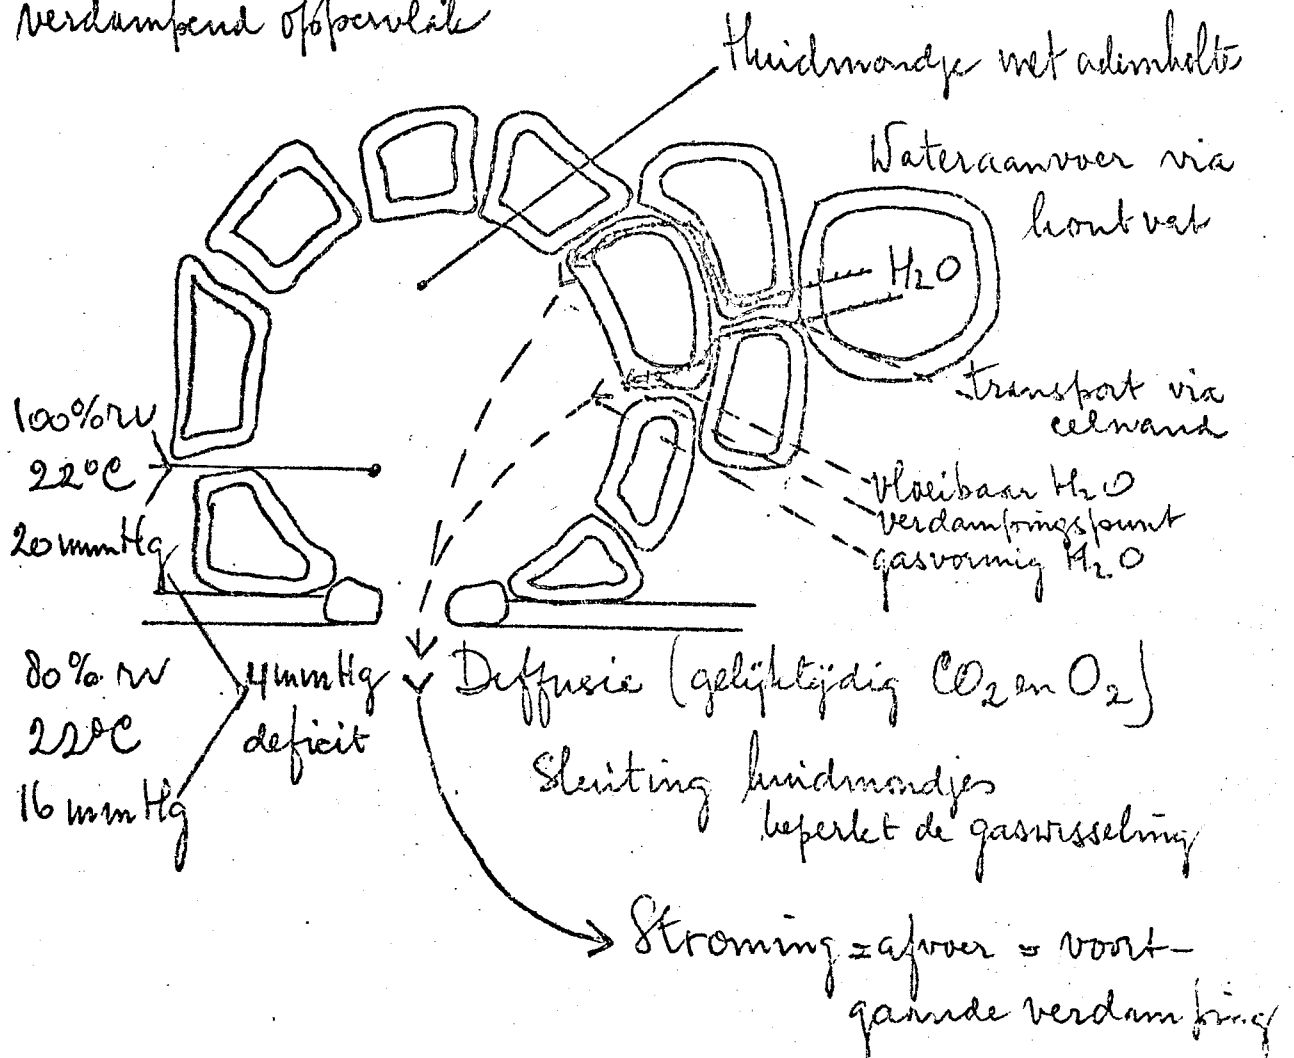 verdampend oppervlak
Huidmondje met ademholte
Wateraanvoer via
houtvat
H2O
transport via
celwand
100% rv
22°C
20 mmHg
vloeibaar H2O
verdampingspunt
gasvormig H2O
80% rv
22°C
16 mmHg
4 mmHg
deficit
Diffusie (gelijktijdig CO2 en O2)
Sluiting huidmondjes
beperkt de gaswisseling
Stroming = afvoer = voort-
gaande verdamping